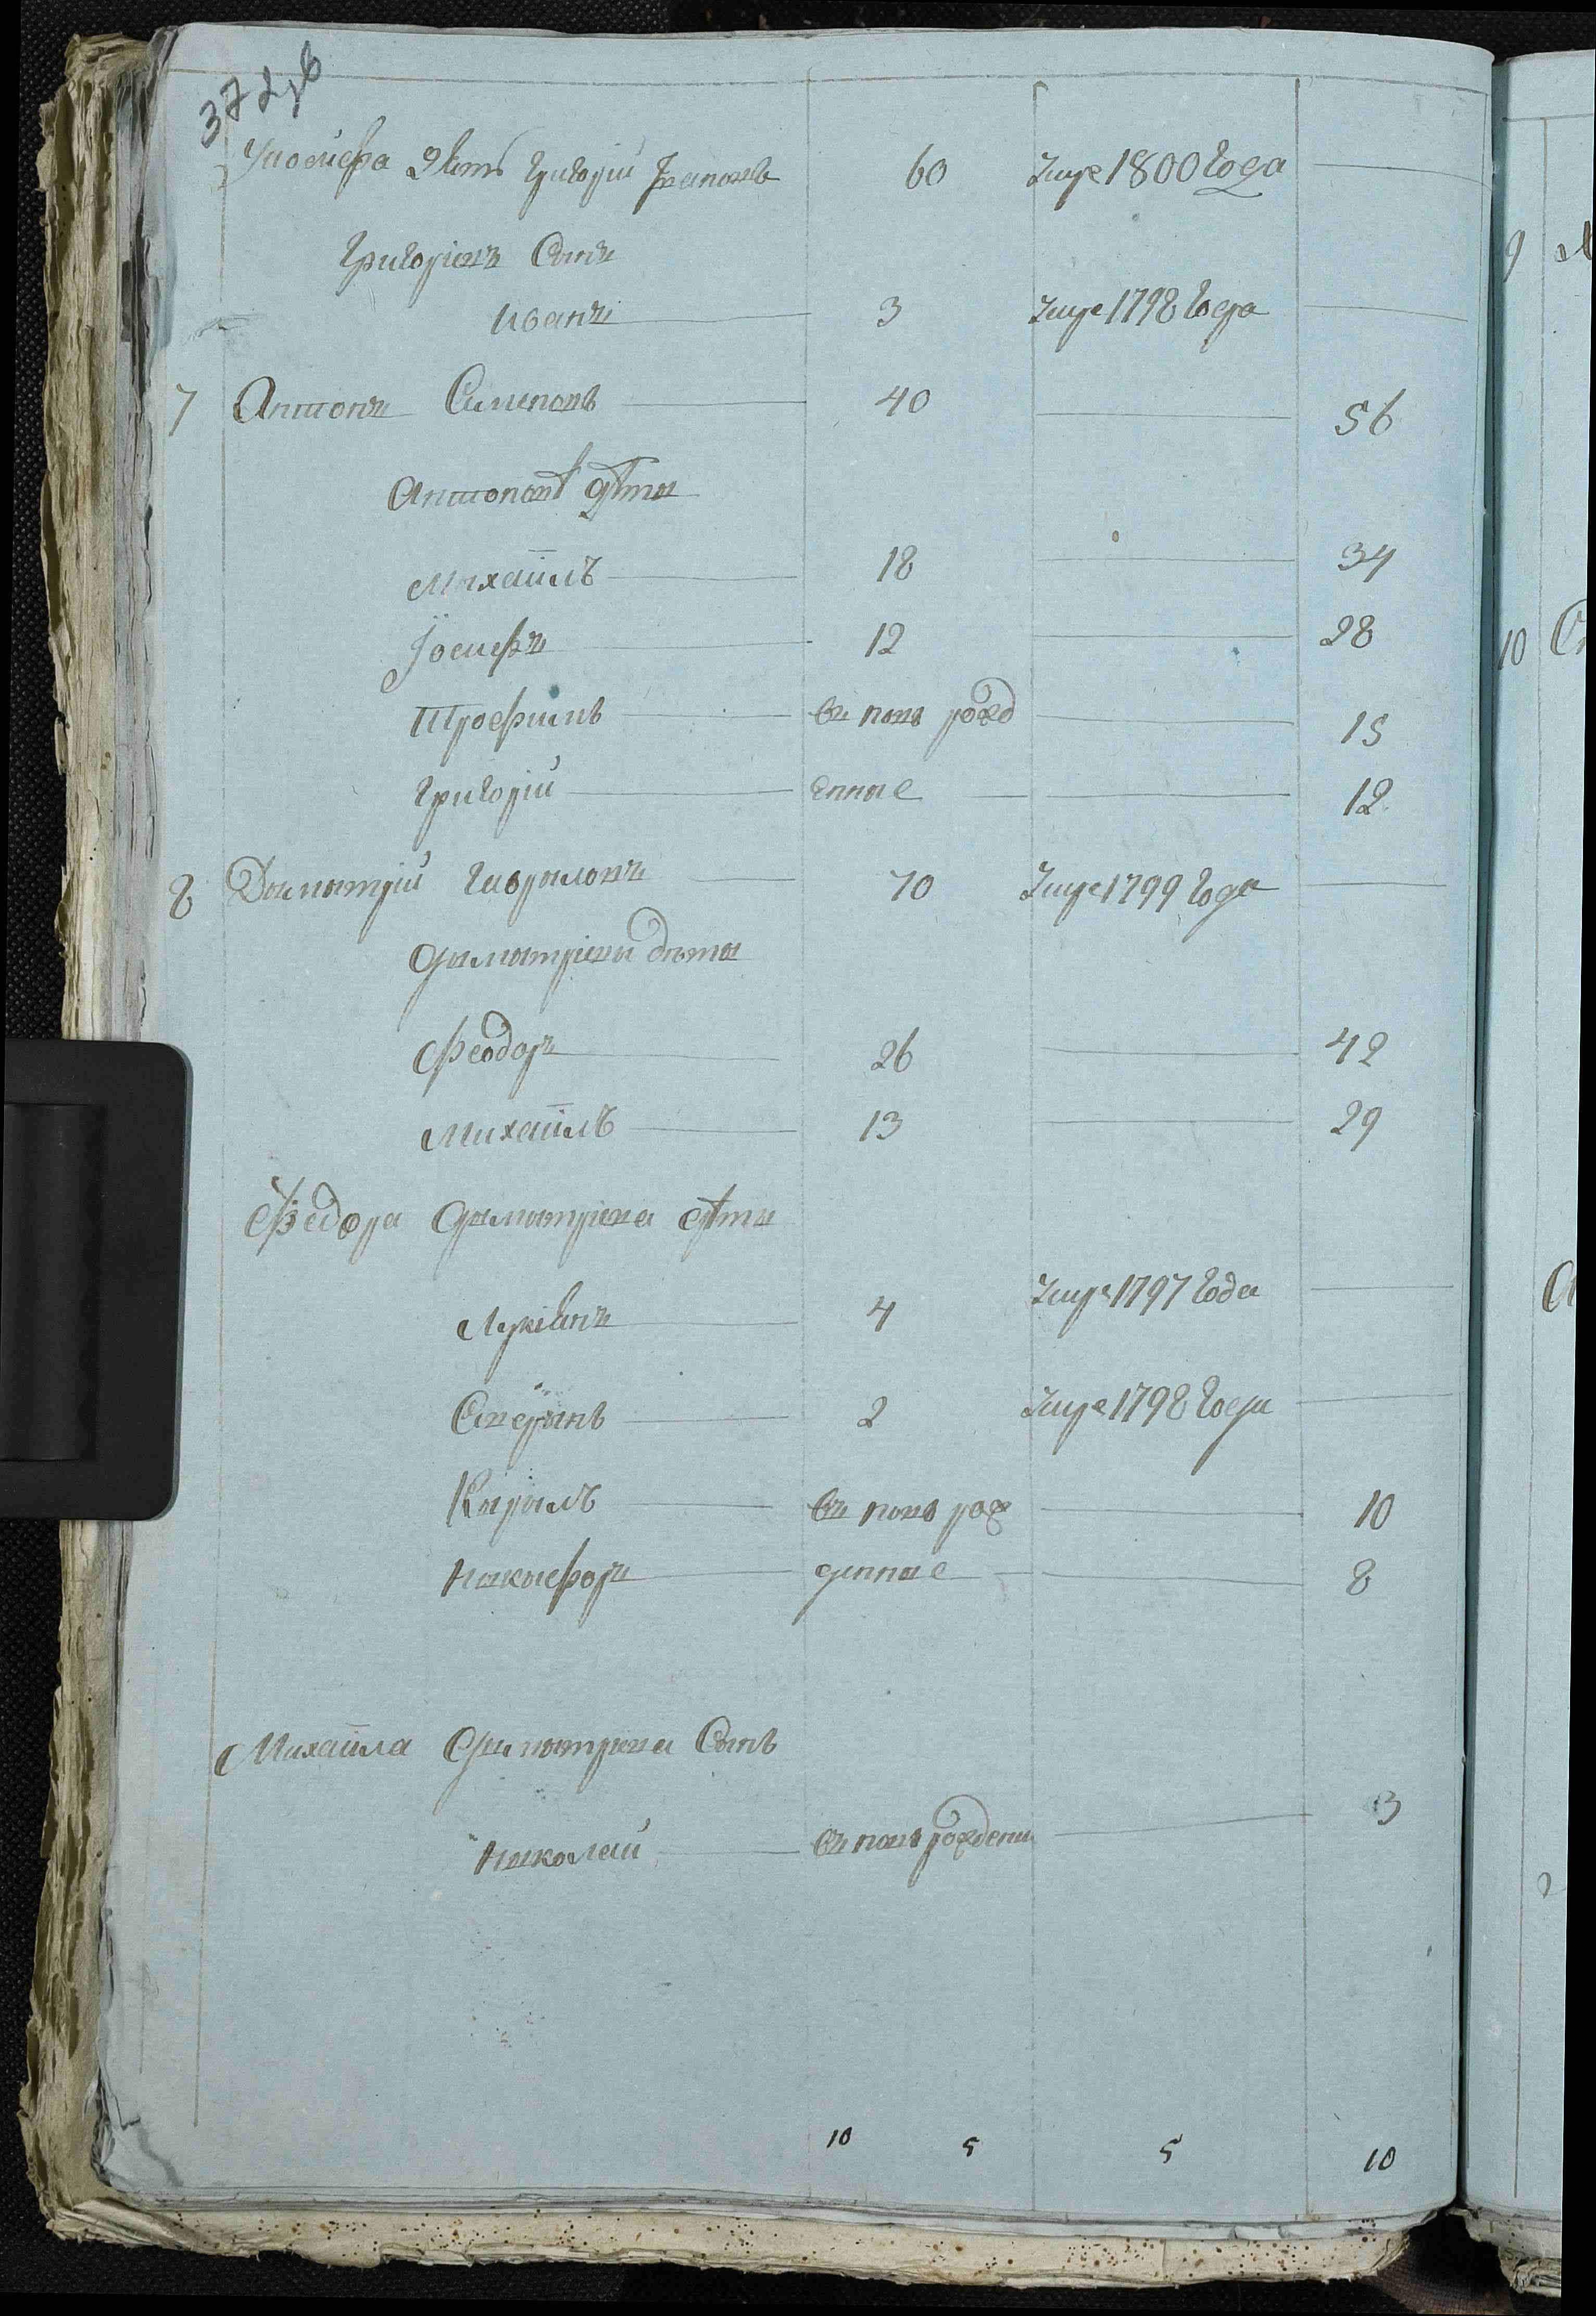 372об
Уиосифа Зять Григорій Ивановъ 60 Умре 1800 года
Григоріевъ Сынъ
Иванъ 3 Умре 1798 года
7 Антонъ Семеновъ 40 56
Антоновы дѣти
Михаилъ 18 34
Іосифъ 12 28
Трофимъ въ новъ рожд 15
Григорій енные 12
8 Димитрій Гавриловъ 70 Умре 1799 года
Димитріевы дѣти
Феодоръ 26 42
Михаилъ 13 29
Федора Димитріева дѣти
Лукіянъ 4 Умре 1797 года
2 Умре 1798 года
Кирилъ въ новъ рож 10
Никифоръ денные 8
Михаила Димитріева Сынъ
Николай въ новъ рожденн 3
10 5 5 10
9
10